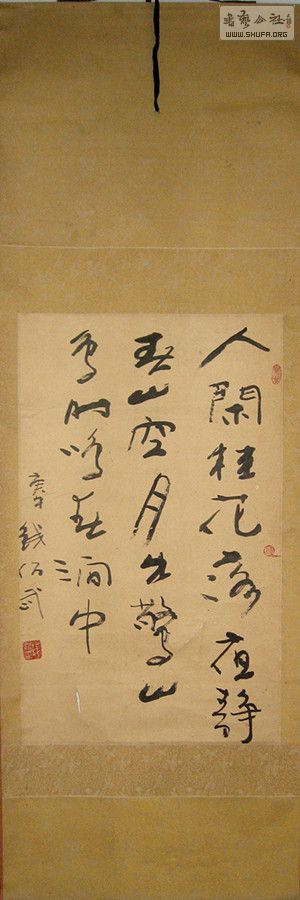 書藝公社
WWW.SHUFA.ORG
人閑桂花落夜靜
春山空月出驚山
鳥時鳴春澗中
庚午 錢伯武